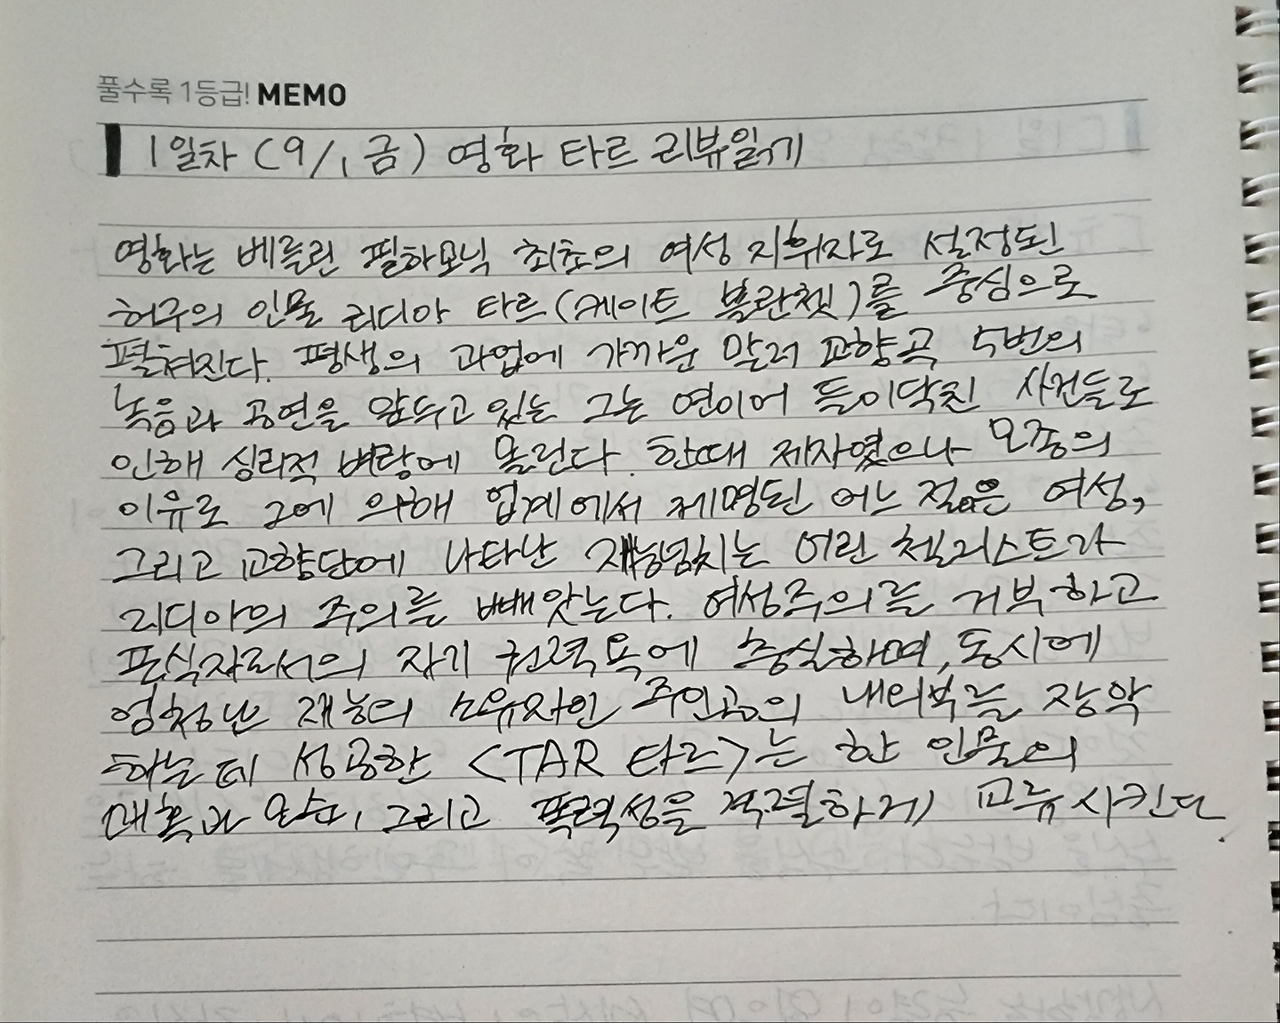 풀수록 1등급! MEMO
1일차 (9/1, 금) 영화 타르 리뷰읽기
영화는 베를린 필하모닉 최초의 여성 지휘자로 설정된
허구의 인물 리디아 타르(케이트 블란쳇)를 중심으로
펼쳐진다. 평생의 과업에 가까운 말러 교향곡 5번의
녹음과 공연을 앞두고 있는 그는 연이어 들이닥친 사건들로
인해 심리적 벼랑에 몰린다. 한때 제자였으나 모종의
이유로 그에 의해 업계에서 제명된 어느 젊은 여성,
그리고 교향단에 나타난 재능넘치는 어린 첼리스트가
리디아의 주의를 빼앗는다. 여성주의를 거부하고
포식자로서의 자기 권력욕에 충실하며, 동시에
엄청난 재능의 소유자인 주인공의 내외부를 장악
하는 데 성공한 <TAR 타르>는 한 인물의
매혹과 모순, 그리고 폭력성을 격렬하게 교류시킨다.